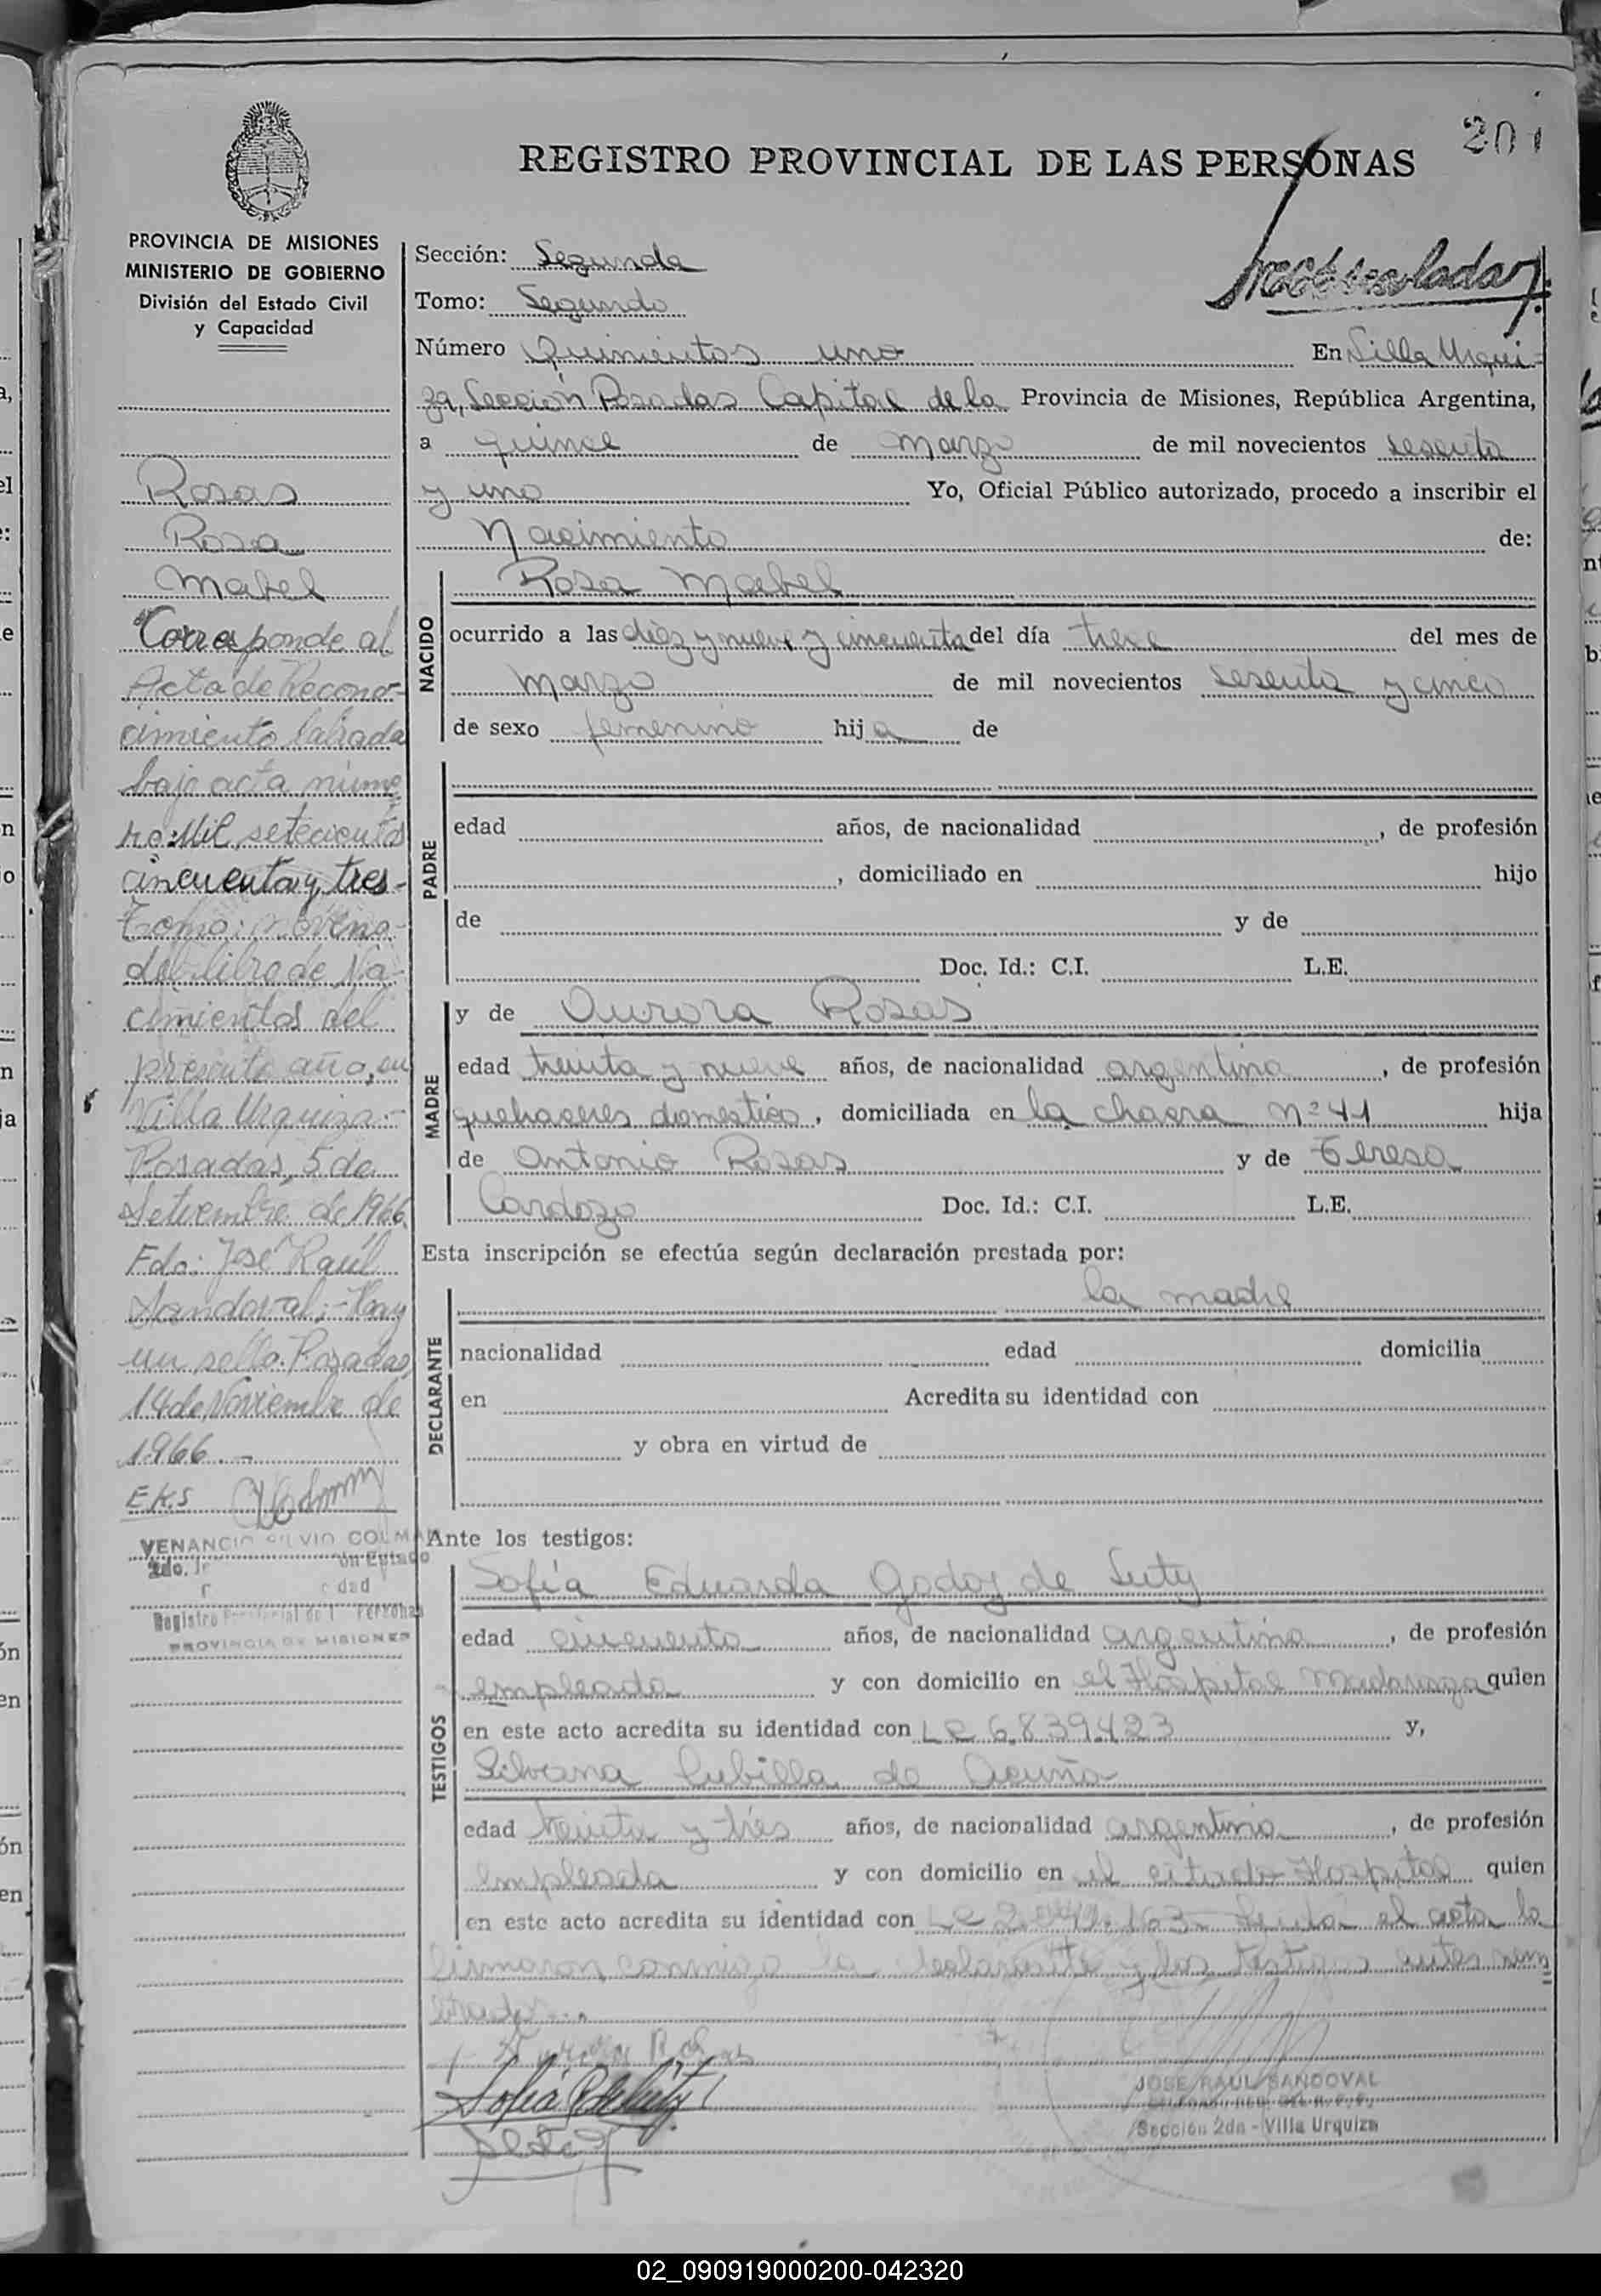 201
REGISTRO PROVINCIAL DE LAS PERSONAS
PROVINCIA DE MISIONES
MINISTERIO DE GOBIERNO
División del Estado Civil
y Capacidad
Rosas
Rosa
Mabel
Corresponde al
Acta de Recono-
cimiento labrada
bajo acta núme
ro: Mil setecientos
cincuenta y tres-
Tomo: noveno-
del libro de Na-
cimientos del
presente año, en
Villa Urquiza.-
Posadas, 5 de
Setiembre de 1966.
Fdo: José Raúl
Sandoval;- Hay
un sello. Posadas,
14 de Noviembre de
1966.-
E.K.S
VENANCIO SILVIO COLMA
2do. J
Registro Provincial de l Personas
PROVINCIA DE MISIONES
Sección: Segunda
Tomo: Segundo
Número Quinientos uno En Villa Urqui=
za, Sección Posadas Capital de la Provincia de Misiones, República Argentina,
a quince de marzo de mil novecientos sesenta
y uno Yo, Oficial Público autorizado, procedo a inscribir el
Nacimiento de:
NACIDO
Rosa Mabel
ocurrido a las diez y nueve y cincuenta del día trece del mes de
marzo de mil novecientos sesenta y cinco
de sexo femenino hija de
PADRE
edad años, de nacionalidad , de profesión
, domiciliado en hijo
de y de
Doc. Id.: C.I. L.E.
MADRE
y de Aurora Rosas
edad treinta y nueve años, de nacionalidad argentina , de profesión
quehaceres domestico, domiciliada en la chacra nº 41 hija
de Antonio Rosas y de Teresa
Cardozo Doc. Id.: C.I. L.E.
Esta inscripción se efectúa según declaración prestada por:
DECLARANTE
la madre
nacionalidad edad domicilia
en Acredita su identidad con
y obra en virtud de
Ante los testigos:
TESTIGOS
Sofía Eduarda Godoy de
edad cincuenta años, de nacionalidad argentina , de profesión
empleada y con domicilio en el Hospital Madariaga quien
en este acto acredita su identidad con LC 6.839.423 y,
Silvana Cubilla de Acuña
edad treinta y trés años, de nacionalidad argentina , de profesión
empleada y con domicilio en el citado Hospital quien
en este acto acredita su identidad con LC el acta la
firmaron conmigo la declarante y los testigos antes nom
brados.-
Aurora Rosas
Sofía
JOSE RAUL SANDOVAL
Sección 2da - Villa Urquiza
02_090919000200-042320